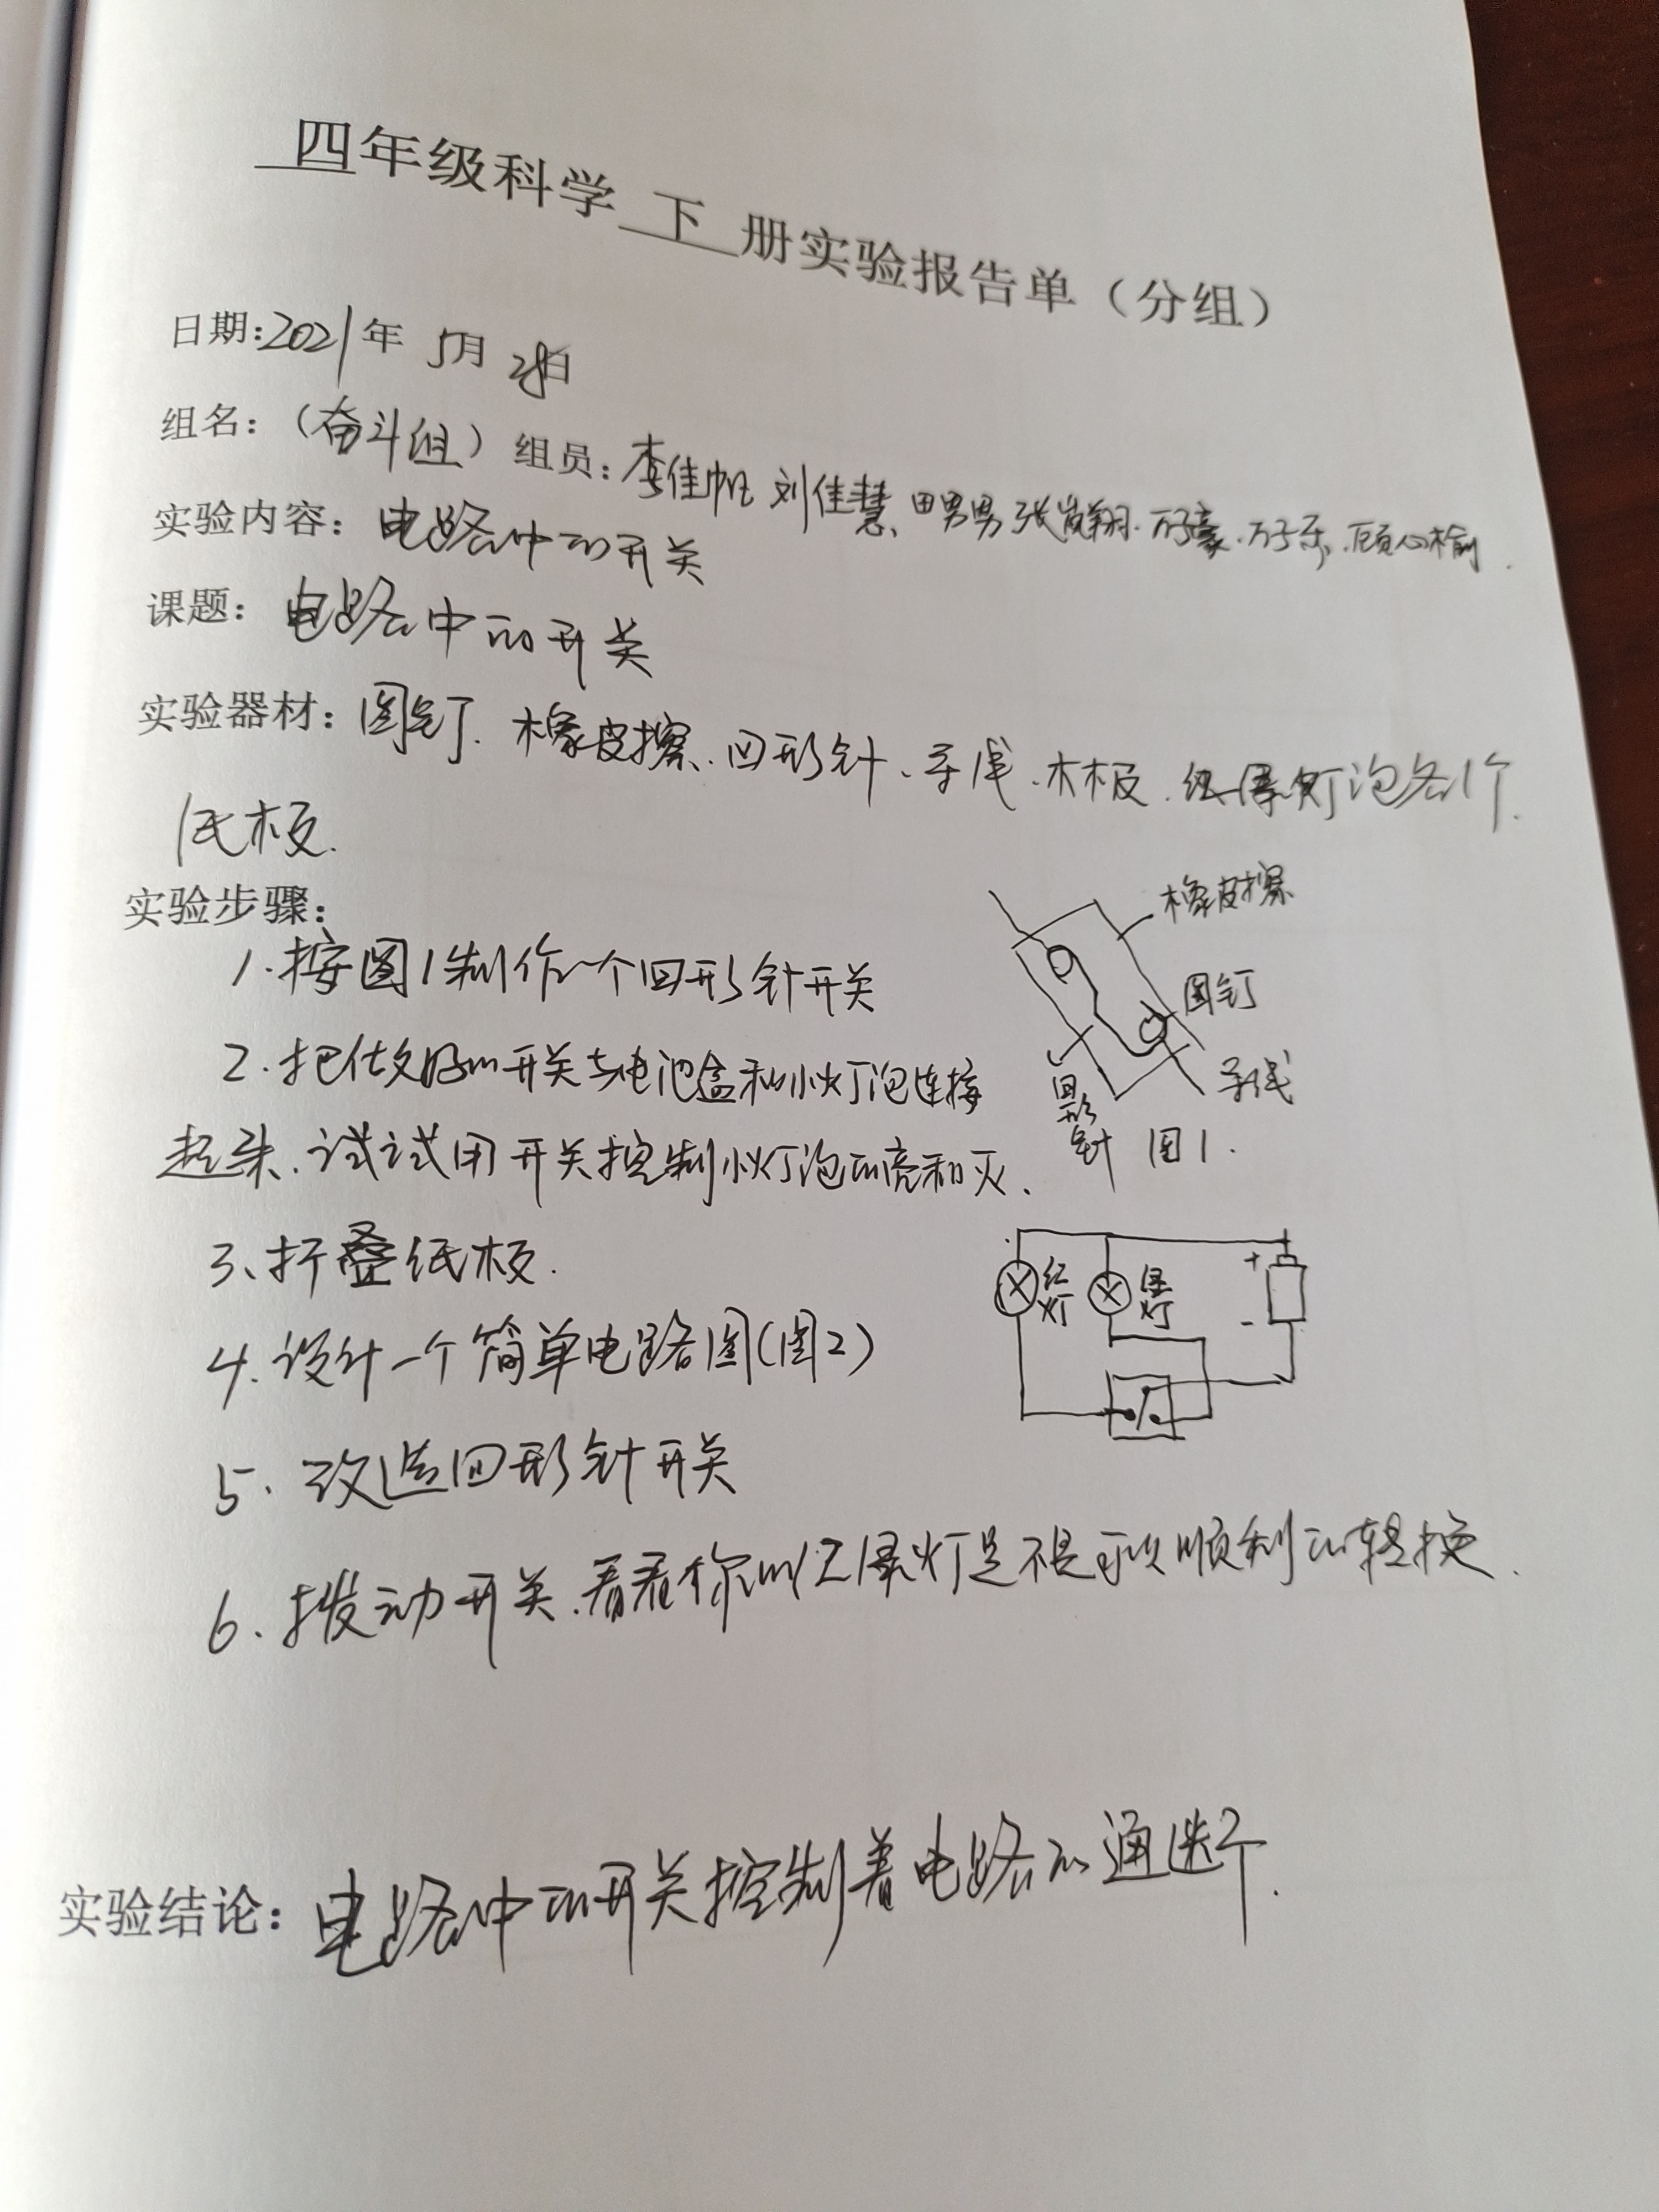 四年级科学 下 册实验报告单（分组）
日期:2021年 5月 28日
组名：（奋斗组）组员：李佳帆 刘佳慧、田男男 张 翔、万子豪、万子乐、顾心榆
实验内容：电路中的开关
课题：电路中的开关
实验器材：图钉、橡皮擦、回形针、导线、木板、红绿灯泡各1个.
纸板.
实验步骤：
1.按图1制作一个回形针开关
2.把做好的开关与电池盒和小灯泡连接
起来、试试用开关控制小灯泡的亮和灭、
3、折叠纸板.
4.设计一个简单电路图(图2)
5.改造回形针开关
6.拨动开关.看看你的红绿灯是不是可以顺利的转换、
橡皮擦
图钉
导线
回形针
图1.
红灯
绿灯
+
-
实验结论：电路中的开关控制着电路的通断.